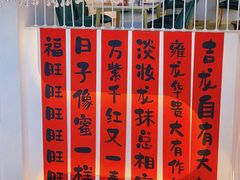 吉龙自有天
雍龙华贵大有作
淡妆龙抹总相宜
万紫千红又一春
日子像蜜一样
福旺旺旺旺旺旺